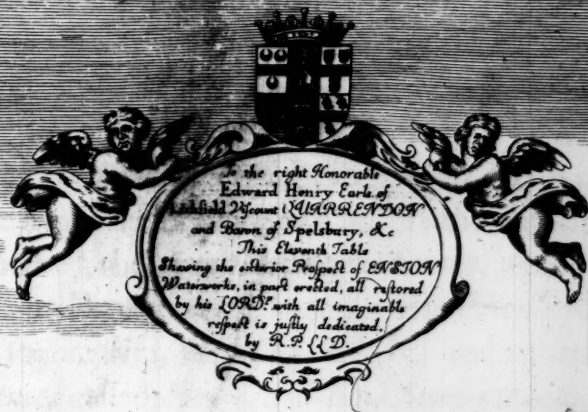 To the right Honorable
Edward Henry Earle of
Litchfield Viscount QUARRENDON
and Baron of Spelsbury, &c
This Eleventh Table
Shewing the exterior Prospect of ENSTON
Waterworks, in part erected, all restored
by his LORDP. with all imaginable
respect is justly dedicated.
by R. P. LLD.